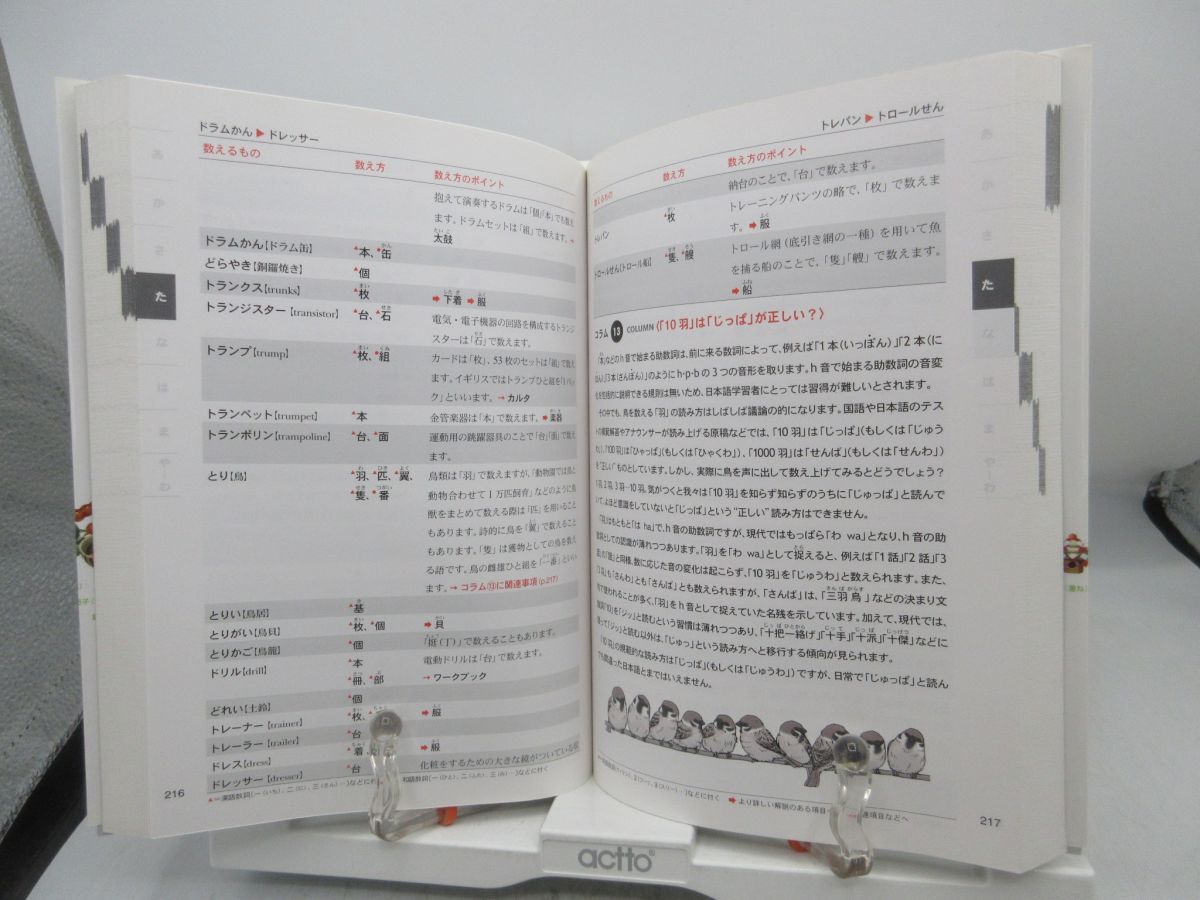 ドラムかん▶ドレッサー
数えるもの 数え方 数え方のポイント
抱えて演奏するドラムは「個」「本」でも数え
ます。ドラムセットは「組」で数えます。→
太鼓
ドラムかん【ドラム缶】 ▲本、▲缶
どらやき【銅鑼焼き】 ▲個
トランクス【trunks】 ▲枚 ➡下着 ➡服
トランジスター【transistor】 ▲台、▲石 電気・電子機器の回路を構成するトランジ
スターは「石」で数えます。
トランプ【trump】 ▲枚、●組 カードは「枚」、53枚のセットは「組」で数え
ます。イギリスではトランプひと組を「1パッ
ク」といいます。→カルタ
トランペット【trumpet】 ▲本 金管楽器は「本」で数えます。➡楽器
トランポリン【trampoline】 ▲台、▲面 運動用の跳躍器具のことで「台」「面」で数え
ます。
とり【鳥】 ▲羽、▲匹、▲翼、
▲隻、●番
鳥類は「羽」で数えますが、「動物園では鳥と
動物合わせて1万匹飼育」などのように鳥
獣をまとめて数える際は「匹」を用いることも
あります。詩的に鳥を「翼」で数えること
もあります。「隻」は獲物としての鳥を数え
る語です。鳥の雌雄ひと組を「一番」といい
ます。→コラム⑬に関連事項(p.217)
とりい【鳥居】 ▲基
とりがい【鳥貝】 ▲枚、▲個 ➡貝
とりかご【鳥籠】 ▲個 「挺(丁)」で数えることもあります。
ドリル【drill】 ▲本 電動ドリルは「台」で数えます。
▲冊、▲部 →ワークブック
どれい【土鈴】 ▲個
トレーナー【trainer】 ▲枚、 ➡服
トレーラー【trailer】 ▲台
ドレス【dress】 ▲着 ➡服
ドレッサー【dresser】 ▲台 化粧をするための大きな鏡がついている
216
▲=漢語数詞[一(いち)、二(に)、三(さん)…]などに付く 和語数詞[一(ひと)、二(ふた)、三(み)…]などに付く
トレパン▶トロールせん
数えるもの 数え方 数え方のポイント
納台のことで、「台」で数えます。
トレパン ▲枚 トレーニングパンツの略で、「枚」で数えま
す。➡服
トロールせん【トロール船】 ▲隻、▲艘 トロール網(底引き網の一種)を用いて魚
を捕る船のことで、「隻」「艘」で数えます。
➡船
あ
か
さ
た
な
は
ま
や〜わ
コラム 13 COLUMN 〈「10羽」は「じっぱ」が正しい?〉
「本」などのh音で始まる助数詞は、前に来る数詞によって、例えば「1本(いっぽん)」「2本(に
ほん)」「3本(さんぼん)」のようにh-p-bの3つの音形を取ります。h音で始まる助数詞の音変
化を包括的に説明できる規則は無いため、日本語学習者にとっては習得が難しいとされます。
その中でも、鳥を数える「羽」の読み方はしばしば議論の的になります。国語や日本語のテス
トの模範解答やアナウンサーが読み上げる原稿などでは、「10羽」は「じっぱ」(もしくは「じゅう
わ」)、「100羽」は「ひゃっぱ」(もしくは「ひゃくわ」)、「1000羽」は「せんば」(もしくは「せんわ」)
を"正しい"ものとしています。しかし、実際に鳥を声に出して数え上げてみるとどうでしょう?
1羽、2羽、3羽…10羽。気がつくと我々は「10羽」を知らず知らずのうちに「じゅっぱ」と読んで
いて、よほど意識をしていないと「じっぱ」という"正しい"読み方はできません。
「羽」はもともと「は ha」で、h音の助数詞ですが、現代ではもっぱら「わ wa」となり、h音の助
数詞としての認識が薄れつつあります。「羽」を「わ wa」として捉えると、例えば「1話」「2話」「3
話」の「話」と同様、数に応じた音の変化は起こらず、「10羽」を「じゅうわ」と数えられます。また、
「3羽」も「さんわ」とも「さんば」とも数えられますが、「さんば」は、「三羽烏」などの決まり文
句で使われることが多く、「羽」をh音として捉えていた名残を示しています。加えて、現代では、
数詞「10」を「ジッ」と読むという習慣は薄れつつあり、「十把一絡げ」「十手」「十派」「十傑」などに
限って「ジッ」と読む以外は、「じゅっ」という読み方へと移行する傾向が見られます。
「10羽」の規範的な読み方は「じっぱ」(もしくは「じゅうわ」)ですが、日常で「じゅっぱ」と読ん
でも間違った日本語とまではいえません。
➡より詳しい解説のある項目 連項目などへ
217
actto